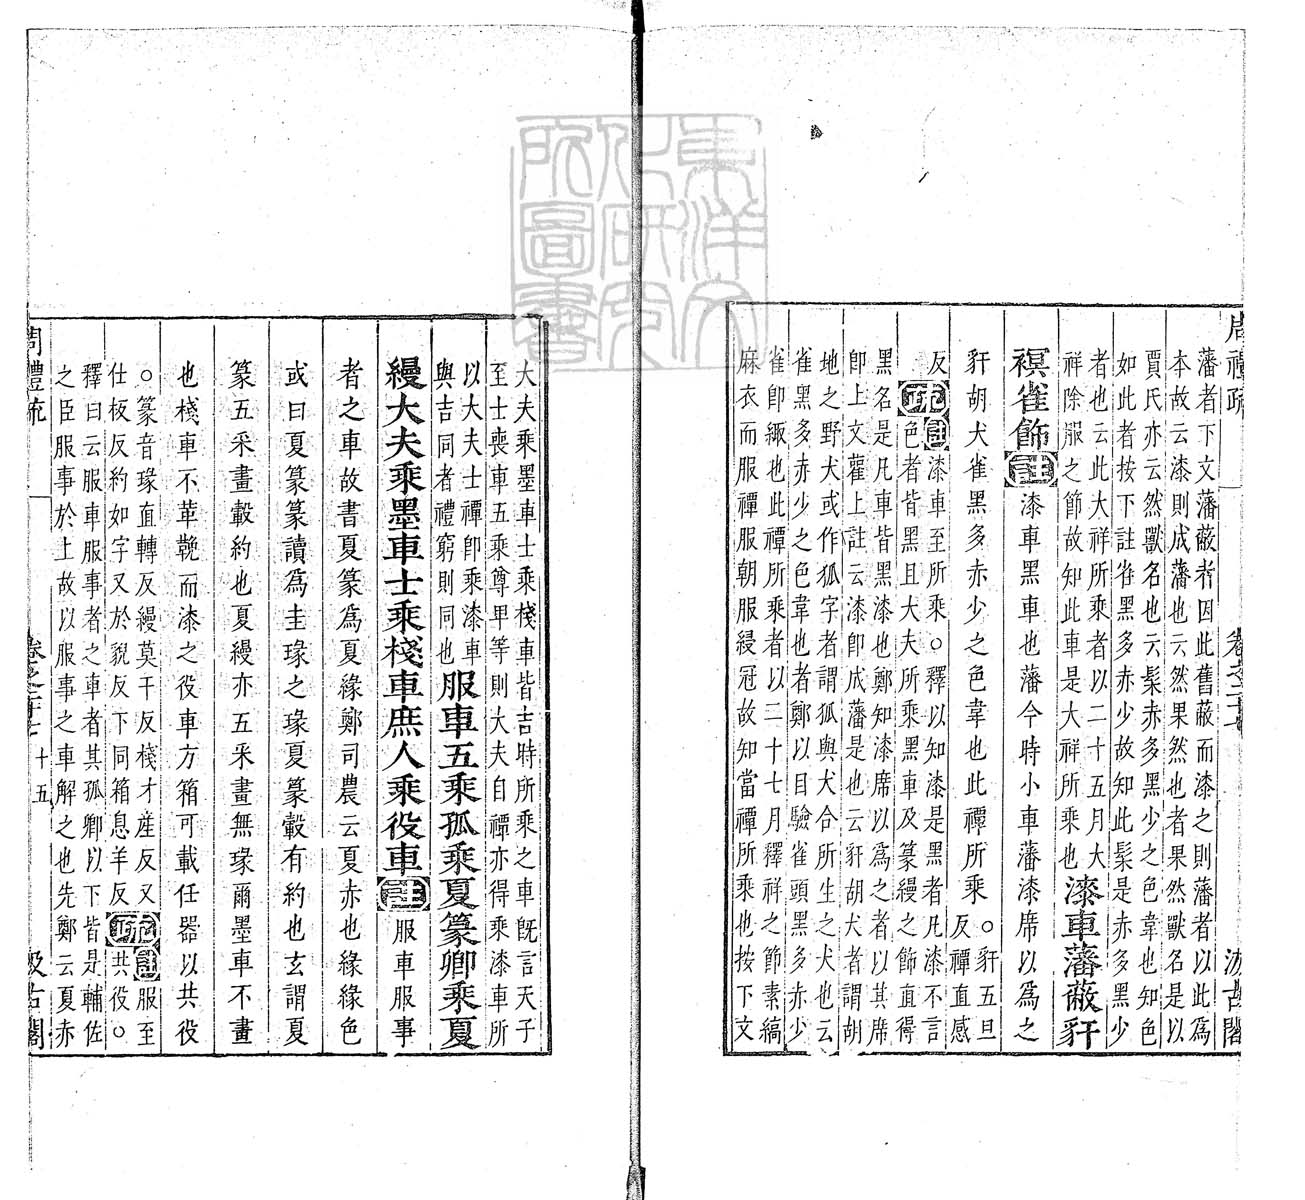 周禮疏
卷之二十七
汲古閣
藩者下文藩蔽者因此舊蔽而漆之則藩者以此爲
本故云漆則成藩也云然果然也者果然獸名是以
賈氏亦云然獸名也云髹赤多黑少之色韋也知色
如此者按下註雀黑多赤少故知此髹是赤多黑少
者也云此大祥所乘者以二十五月大
祥除服之節故知此車是大祥所乘也
漆車藩蔽豻
𧜀雀飾註漆車黑車也藩今時小車藩漆席以爲之
豻胡犬雀黑多赤少之色韋也此禫所乘○豻五旦
反禫直感
反疏註漆車至所乘○釋以知漆是黑者凡漆不言
色者皆黑且大夫所乘黑車及篆縵之飾直得
黑名是凡車皆黑漆也鄭知漆席以爲之者以其席
卽上文雚上註云漆卽成藩是也云豻胡犬者謂胡
地之野犬或作狐字者謂狐與犬合所生之犬也云
雀黑多赤少之色韋也者鄭以目驗雀頭黑多赤少
雀卽緅也此禫所乘者以二十七月釋祥之節素縞
麻衣而服禫服朝服綅冠故知當禫所乘也按下文
大夫乘墨車士乘棧車皆吉時所乘之車旣言天子
至士喪車五乘尊卑等則大夫自禫亦得乘漆車所
以大夫士禫卽乘漆車
與吉同者禮窮則同也
服車五乘孤乘夏篆卿乘夏
縵大夫乘墨車士乘棧車庶人乘役車註服車服事
者之車故書夏篆爲夏緣鄭司農云夏赤也緣緣色
或曰夏篆篆讀爲圭瑑之瑑夏篆轂有約也玄謂夏
篆五采畫轂約也夏縵亦五采畫無瑑爾墨車不畫
也棧車不革鞔而漆之役車方箱可載任器以共役
○篆音瑑直轉反縵莫干反棧才產反又
仕板反約如字又於貌反下同箱息羊反
共役○
疏註服至
釋曰云服車服事者之車者其孤卿以下皆是輔佐
之臣服事於上故以服事之車解之也先鄭云夏赤
周禮疏
卷之二十七
十五
汲古閣
東洋文
化研究
所圖書